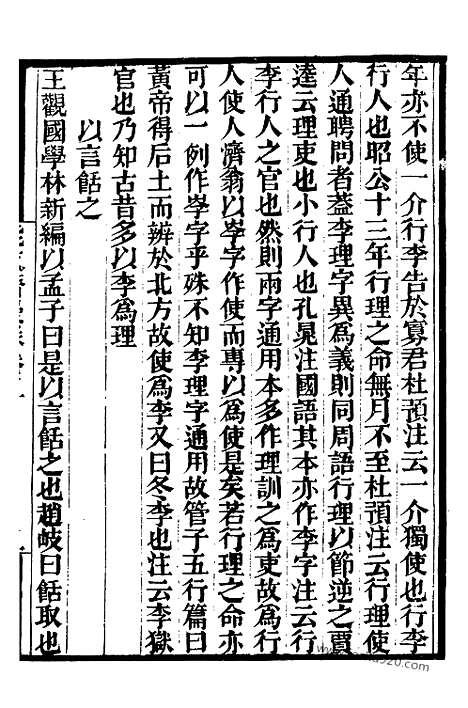 年亦不使一介行李告於寡君杜預注云一介獨使也行李
行人也昭公十三年行理之命無月不至杜預注云行理使
人通聘問者葢李理字異為義則同周語行理以節逆之賈
逵云理吏也小行人也孔晁注國語其本亦作李字注云行
李行人之官也然則兩字通用本多作理訓之為吏故為行
人使人濟翁以𡥈字作使而專以為使是矣若行理之命亦
可以一例作𡥈字乎殊不知李理字通用故管子五行篇曰
黃帝得后土而辨於北方故使為李又曰冬李也注云李獄
官也乃知古昔多以李為理
以言餂之
王觀國學林新編以孟子曰是以言餂之也趙岐曰餂取也